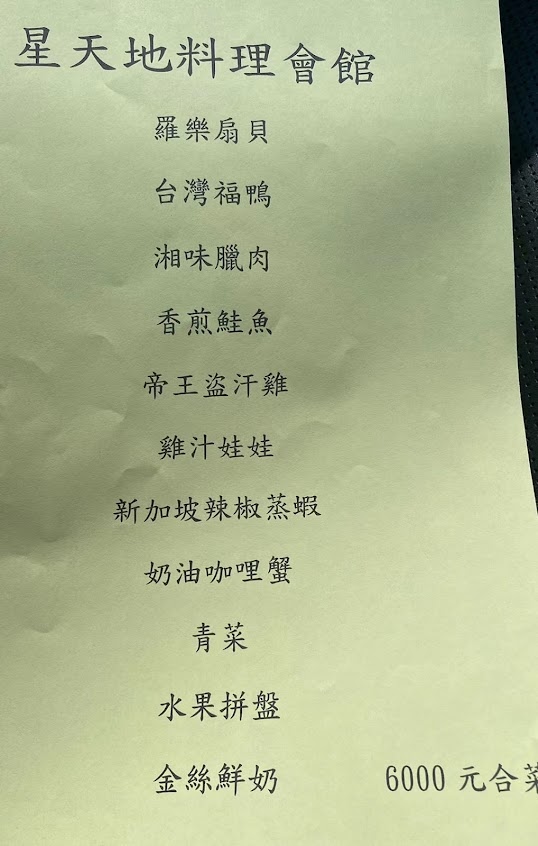 星天地料理會館
羅樂扇貝
台灣福鴨
湘味臘肉
香煎鮭魚
帝王盜汗雞
雞汁娃娃
新加坡辣椒蒸蝦
奶油咖哩蟹
青菜
水果拼盤
金絲鮮奶 6000 元合菜